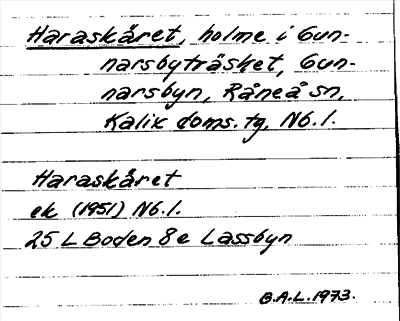 Haraskäret, holme i Gun-
narsbyträsket, Gun-
narsbyn, Råneå sn,
Kalix doms. tg, Nb. l.
Haraskäret
ek (1951) Nb. l.
25 L Boden 8e Lassbyn
B.A.L. 1973.